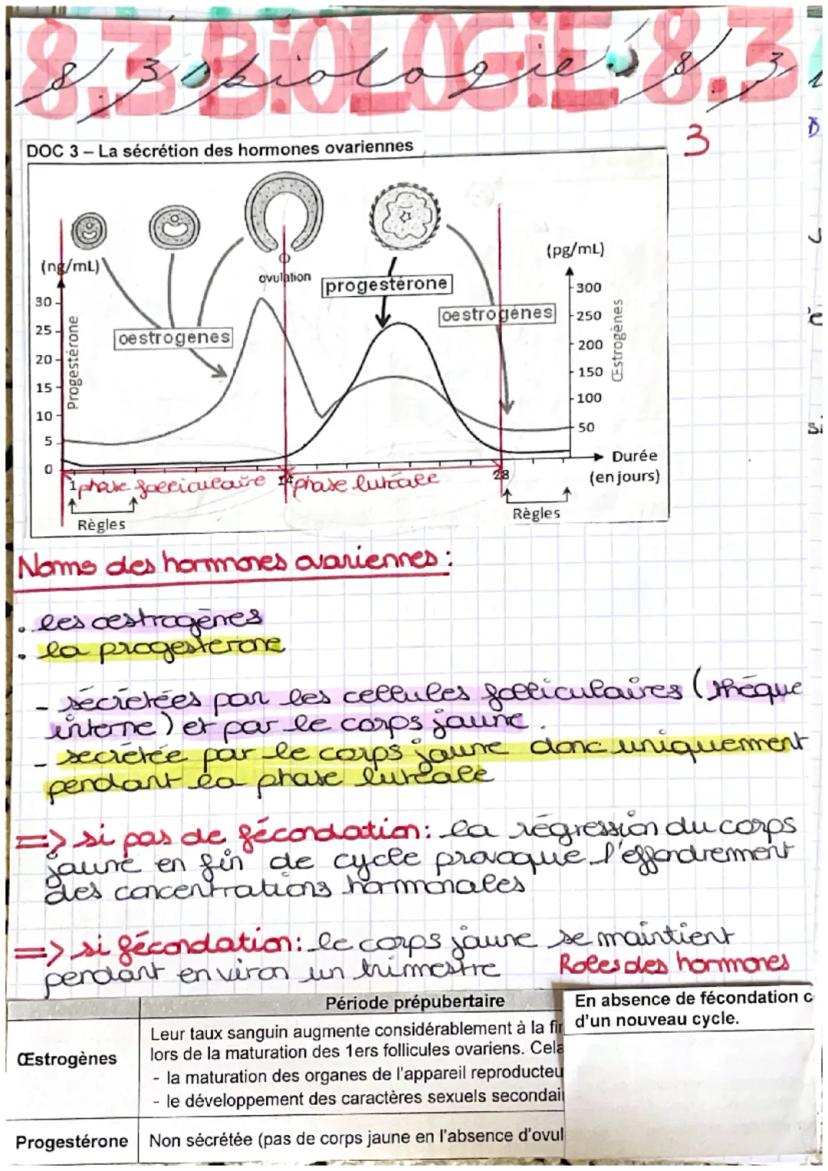 8.3 BiOLOGiE 8.3
8.3 biologie 8.3
3
DOC 3 – La sécrétion des hormones ovariennes
(ng/mL)
(pg/mL)
ovulation
progestérone
oestrogènes
oestrogènes
30
25
20
15
10
5
0
Progestérone
300
250
200
150
100
50
Œstrogènes
Durée
(en jours)
1 phase folliculaire 14 phase lutéale 28
Règles
Règles
Noms des hormones ovariennes :
. les œstrogènes
. la progesterone
- sécrétées par les cellules folliculaires (thèque
interne) et par le corps jaune.
- secrétée par le corps jaune donc uniquement
pendant la phase lutéale
=> si pas de fécondation: la régression du corps
jaune en fin de cycle provoque l'effondrement
des concentrations hormonales
=> si fécondation: le corps jaune se maintient
pendant environ un trimestre
Roles des hormones
Période prépubertaire
Œstrogènes
Leur taux sanguin augmente considérablement à la fi
lors de la maturation des 1ers follicules ovariens. Cela
- la maturation des organes de l'appareil reproducteu
- le développement des caractères sexuels secondai
Progestérone
Non sécrétée (pas de corps jaune en l'absence d'ovul
En absence de fécondation c
d'un nouveau cycle.